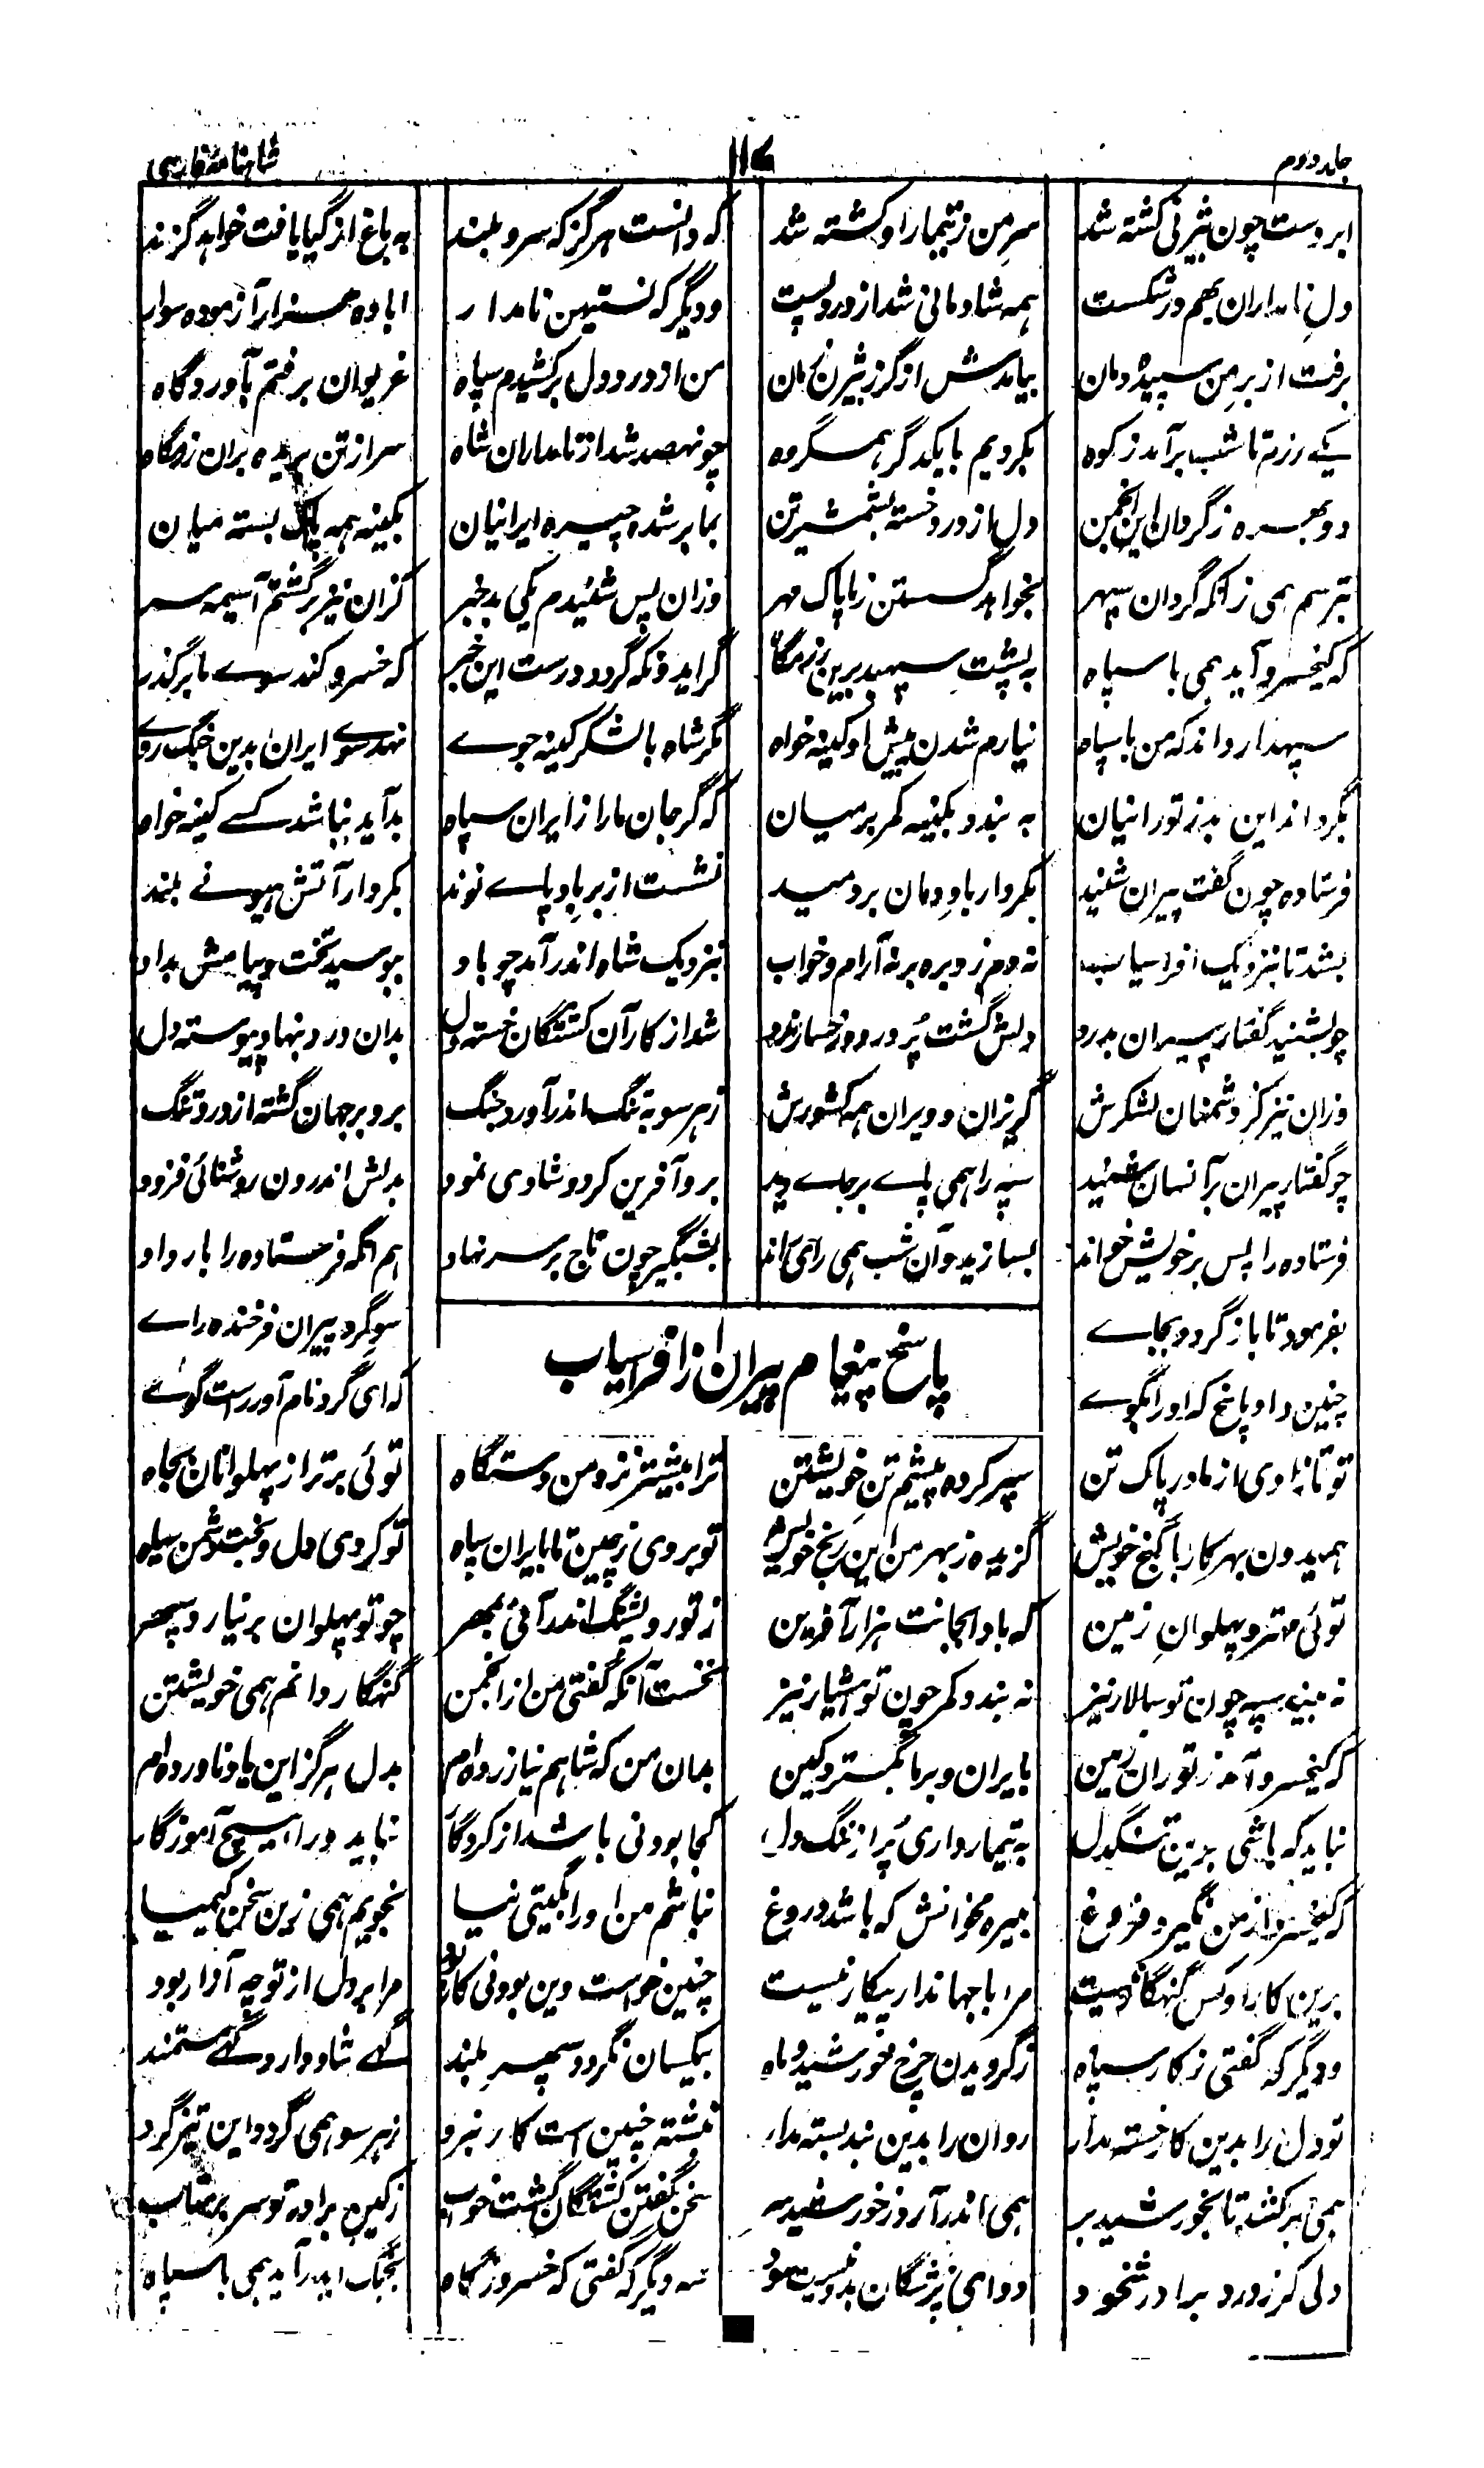 جلد دوم ۱۱۷ شاهنامهٔ فارسی
ابر دست چون بیژنی کشته شد سرِ من ز تیمار او گشته شد که دانست هرگز که سرو بلند به باغ از گیا یافت خواهد گزند
دلِ نامداران بهم در شکست همه شادمانی شد از درد پست و دیگر که نستیهن نامدار ابا ده هزار آزموده سوار
برفت از برِ من سپیده دمان بیامدش از گرز بیژن زمان من از درد دل برکشیدم سپاه غریوان برفتم بآوردگاه
یکے رزم تا شب برآمد ز کوه بکردیم با یکدگر همگروه چو نهصد شد از نامداران شاه سر از تن بریده بران رزمگاه
دو بهره ز گردان این انجمن دل از درد خسته بشمشیر تن بما بر شده چیره ایرانیان بکینه همه پاک بسته میان
بترسم همی ز آنکه گردان سپهر بخواهد گسستن ز ما پاک مهر وزان پس شنیدم یکی بد خبر کزان نیز برگشتم آسیمه سر
که کیخسرو آید همی با سپاه به پشت سپهبد برین رزمگاه گر ایدونکه گردد درست این خبر که خسرو کند سوے ما بر گذر
سپهدار داند که من با سپاه نیارم شدن پیش او کینه خواه مگر شاه با لشکر کینه جوے نهد سوے ایران بدین جنگ روے
بگرداند این بد ز تورانیان به بندد بکینه کمر بر میان که گر جان ما را ز ایران سپاه بدآید نباشد کسے کینه خواه
فرستاده چون گفت پیران شنید بکردار باد دمان بر دمید نشست از برِ بادپاے نوند بکردار آتش هیونے بلند
بشد تا بنزدیک افراسیاب نه دم زد بره بر نه آرام و خواب بنزدیک شاه اندر آمد چو باد ببوسید تخت و پیامش بداد
چو بشنید گفتار پیران بدرد دلش گشت پر درد و رخساره زرد شد از کار آن کشتگان خسته دل بدان درد بنهاد پیوسته دل
وزان نیز کز دشمنان لشکرش گریزان و ویران همه کشورش ز هر سو به تنگ اندر آورد جنگ برو بر جهان گشته از درد تنگ
چو گفتار پیران بر آنسان شنید سپه را همی پاے بر جاے دید برو آفرین کرد و شادی نمود بدلش اندرون روشنائی فزود
فرستاده را پس بر خویش خواند بسازید و آن شب همی رای راند بشبگیر چون تاج بر سر نهاد هم آنگه فرستاده را بار داد
بفرمود تا باز گردد بجاے سوی گرد پیران فرخنده راے
پاسخ پیغام پیران از افراسیاب
چنین داد پاسخ که او را بگوے که ای گرد نام آور راست گوے
تو تا زادی از مادر پاک تن سپر کرده پیشم تن خویشتن ترا بیشتر نزد من دستگاه توئی برتر از پهلوانان بجاه
همیدون بهر کار با گنج خویش گزیده ز بهر من این رنج خویش تو بردی ز چین تا بایران سپاه تو کردی دل و بخت دشمن سیاه
توئی مهتر و پهلوانِ زمین که بادا بجانت هزار آفرین ز تور و پشنگ اندر آئی بمهر چو تو پهلوان بر نیارد سپهر
نه بیند سپه چون تو سالار نیز نه بندد کمر چون تو هشیار نیز نخست آنکه گفتی من از انجمن گنهکار دانم همی خویشتن
که کیخسرو آمد ز توران زمین بایران و بر ما بگسترد کین بدان من که شاهم نیازرده ام بدل هرگز این یاد ناورده ام
نباید که باشی بدین تنگدل به تیمار داری پر از ننگ دل کجا بودنی باشد از کردگار نباید ورا هیچ آموزگار
که کیخسرو از من نگیرد فروغ نبیره مخوانش که باشد دروغ نباشم من او را بگیتی نیا نجویم همی زین سخن کیمیا
برین کار او کس گنهگار نیست مرا با جهاندار پیکار نیست چنین خواست وین بودنی کار بود مرا بر دل از تو چه آزار بود
و دیگر که گفتی ز کار سپاه ز گردیدن چرخ و خورشید و ماه بیکسان نگردد سپهر بلند گهے شاد دارد گهے مستمند
تو دل را بدین کار خسته مدار روان را بدین بند بسته مدار نبشته چنین است کار نبرد ز هر سو همی گردد این تیز گرد
همی برکشد تا بخورشید بر همی اندر آرد ز خورشید سر سخن گفتن کشتگان گشت خواب ز کین برادر تو سر بر متاب
دلی کز درد برادر شخود دوای پزشکان بدو نیست سود سه دیگر که گفتی که خسرو ز گاه بجنگ ایدر آید همی با سپاه